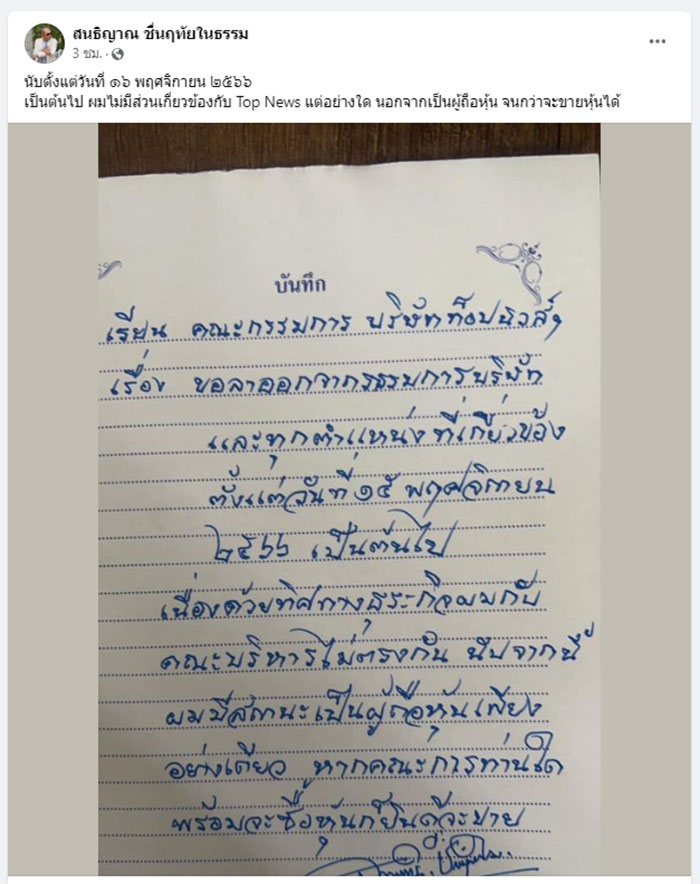 สนธิญาณ ชื่นฤทัยในธรรม
3 ชม. ·
นับตั้งแต่วันที่ ๑๖ พฤศจิกายน ๒๕๖๖
เป็นต้นไป ผมไม่มีส่วนเกี่ยวข้องกับ Top News แต่อย่างใด นอกจากเป็นผู้ถือหุ้น จนกว่าจะขายหุ้นได้
บันทึก
เรียน คณะกรรมการ บริษัทท็อปนิวส์ฯ
เรื่อง ขอลาออกจากกรรมการบริษัท
และทุกตำแหน่งที่เกี่ยวข้อง
ตั้งแต่วันที่ ๑๕ พฤศจิกายน
๒๕๖๖ เป็นต้นไป
เนื่องด้วยทิศทางธุระกิจผมกับ
คณะบริหารไม่ตรงกัน นับจากนี้
ผมมีสถานะเป็นผู้ถือหุ้นเพียง
อย่างเดียว หากคณะการท่านใด
พร้อมจะซื้อหุ้นก็ยินดีจะขาย